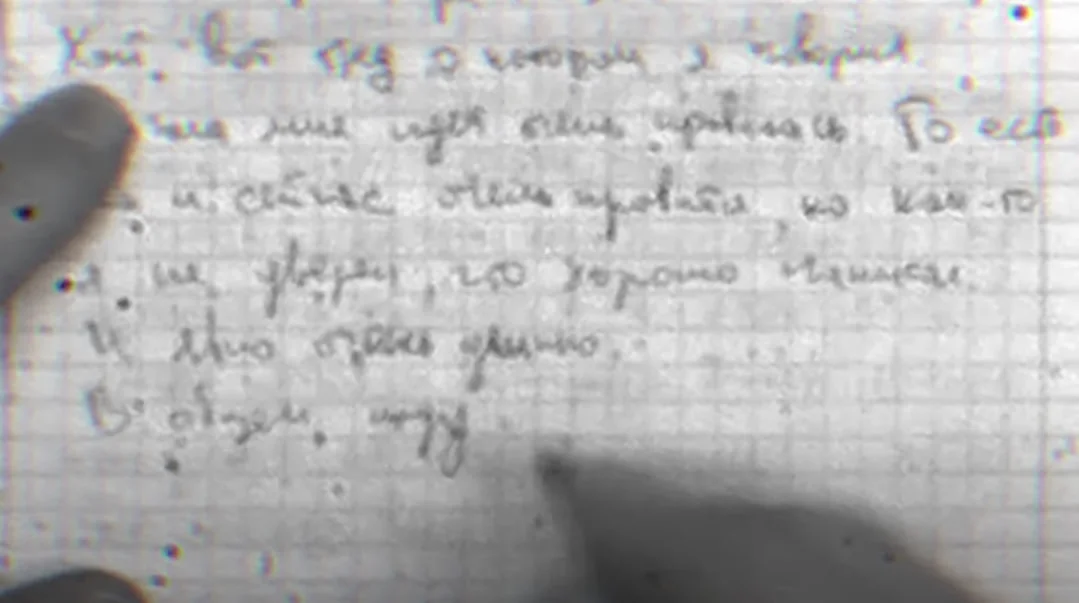 Хой, вот пред о котором я говорил.
мне идея очень нравилась. То есть
и сейчас очень нравится, но как-то
я не уверен, что хорошо написал.
И явно очень длинно.
В общем, жду